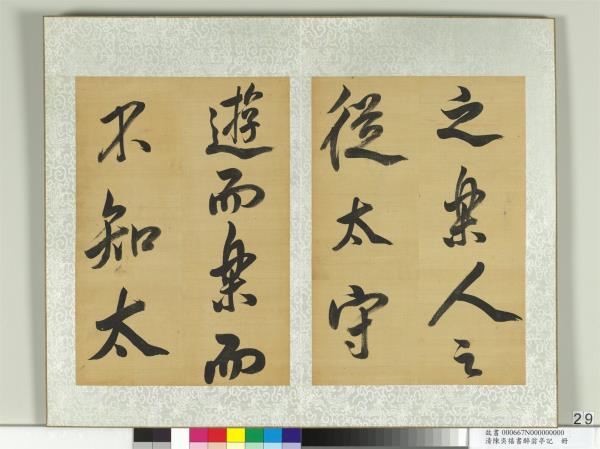 之樂人之
從太守
遊而樂而
不知太
29
故書 000667N000000000
清陳奕禧書醉翁亭記 冊